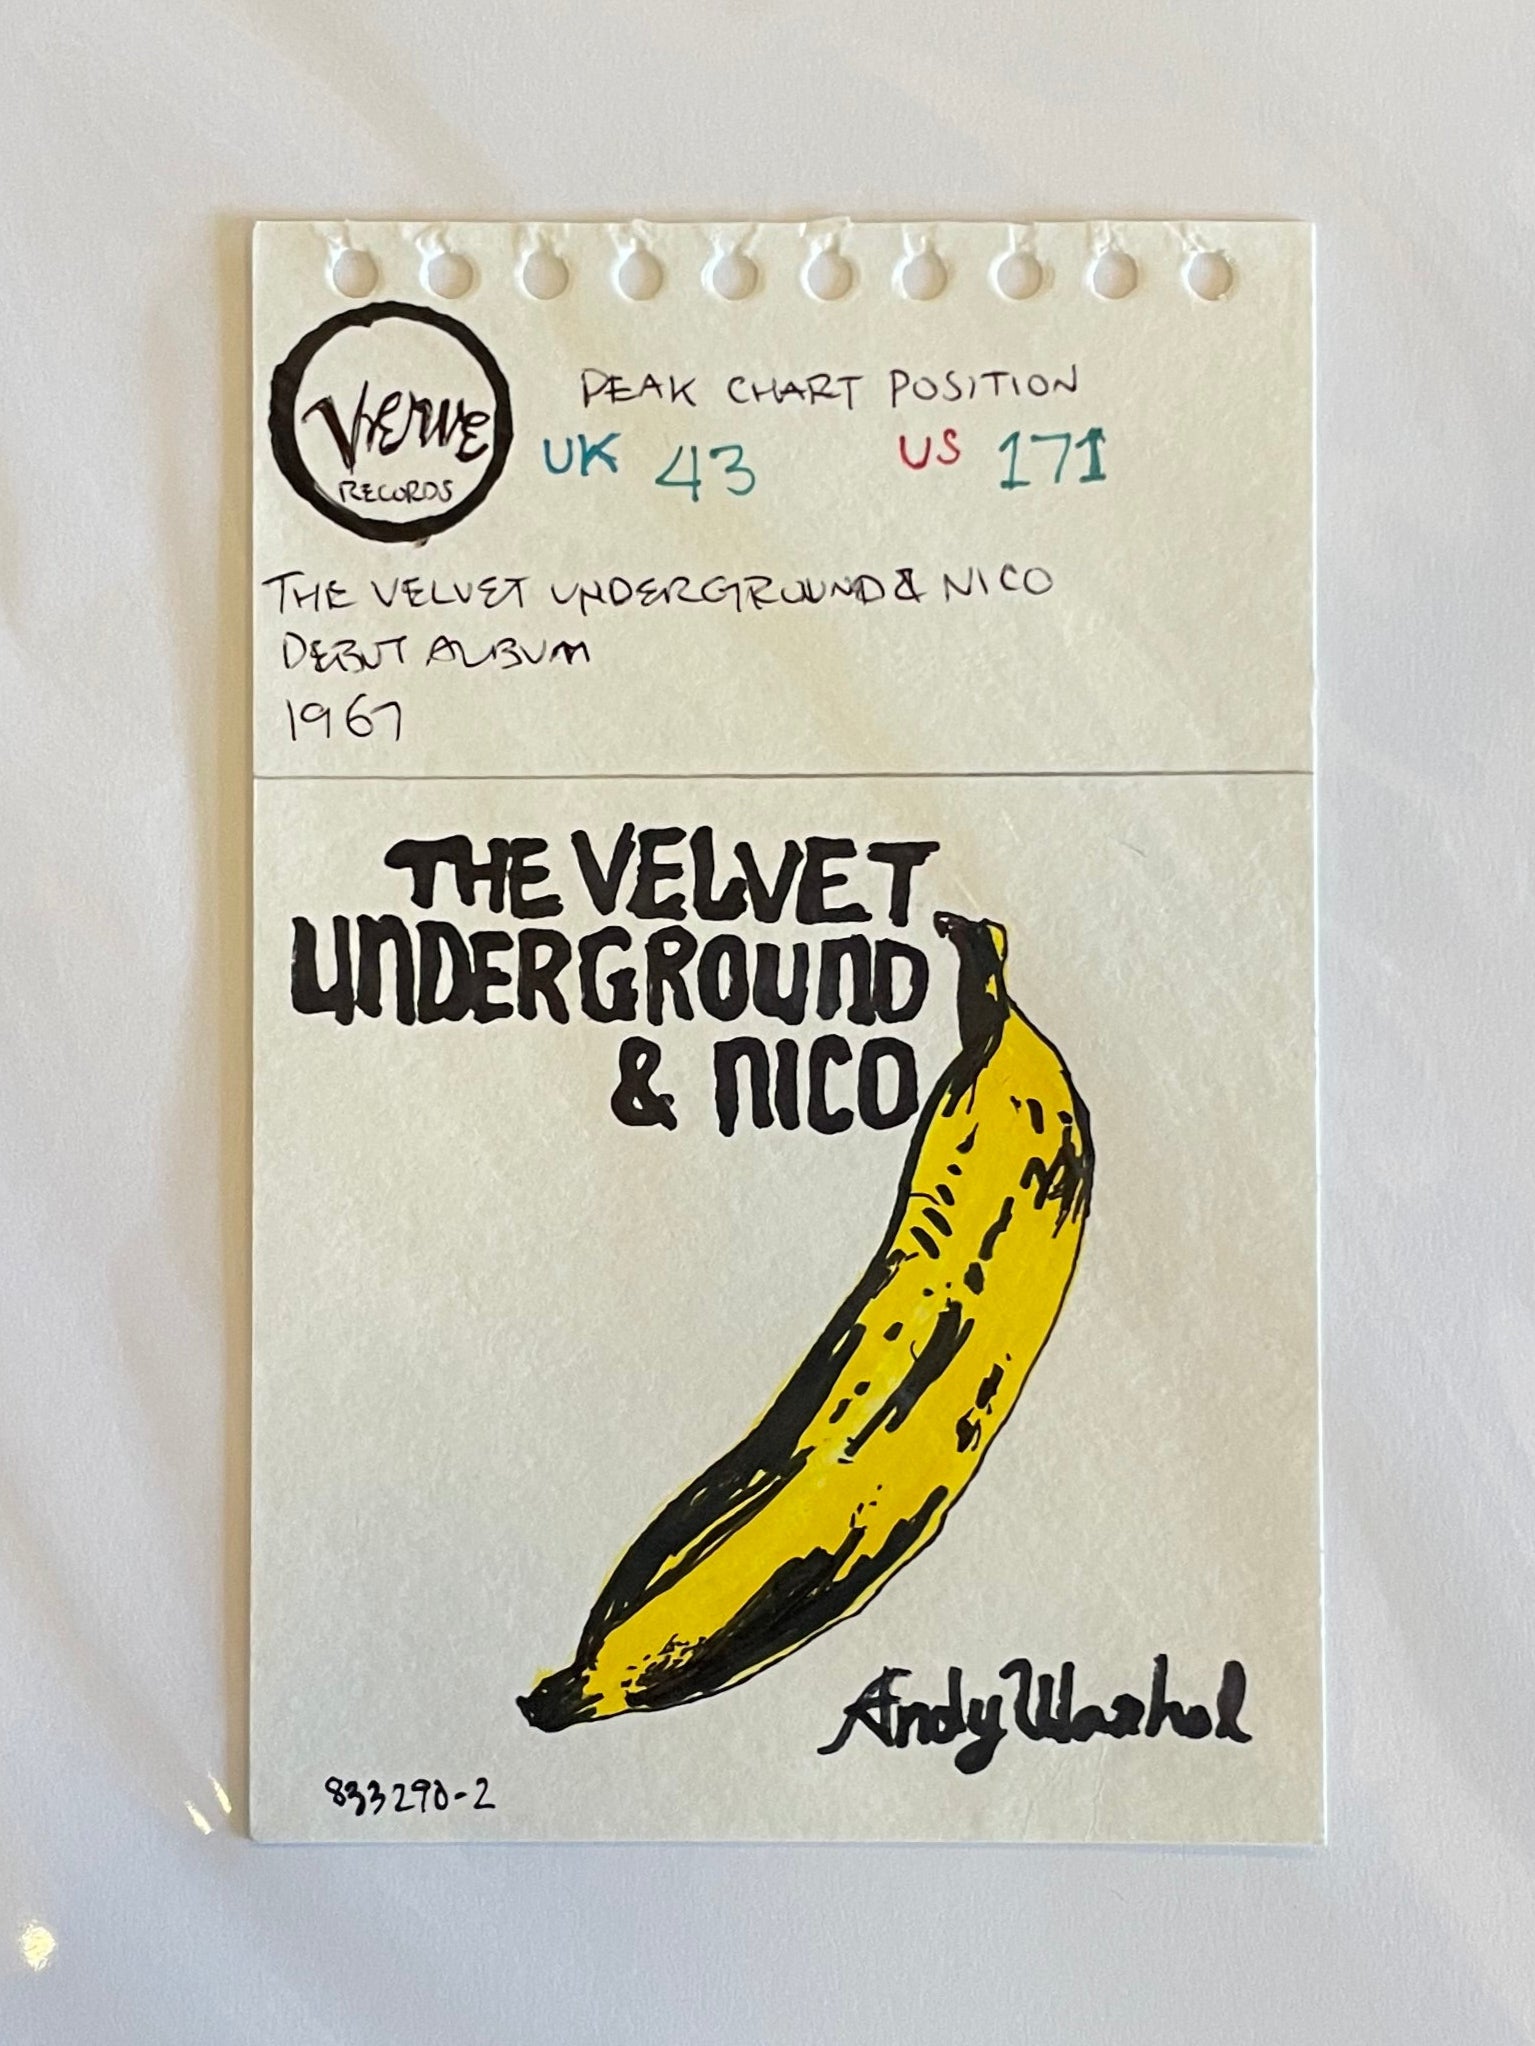 Verve
RECORDS
PEAK CHART POSITION
UK 43 US 171
THE VELVET UNDERGROUND & NICO
DEBUT ALBUM
1967
THE VELVET
UNDERGROUND
& NICO
Andy Warhol
833290-2